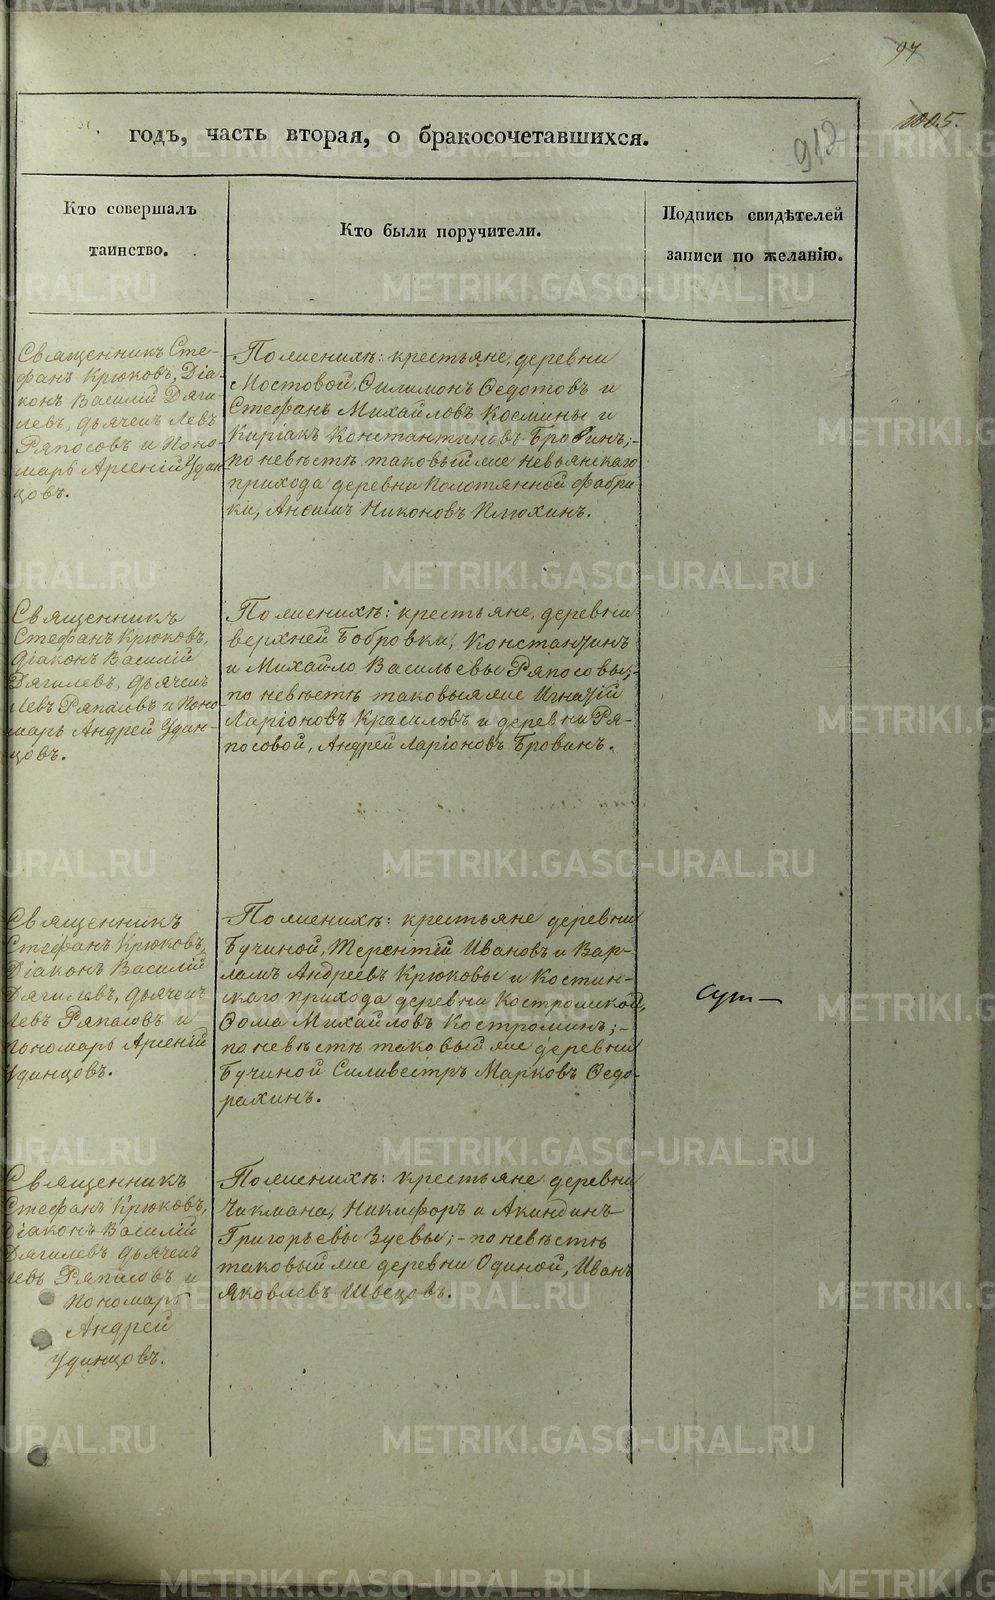 97
1005.
912
годъ, часть вторая, о бракосочетавшихся.
Кто совершалъ
таинство.
Кто были поручители.
Подпись свидѣтелей
записи по желанію.
Священникъ Сте-
фанъ Крюковъ, Діа-
конъ Василій Дяги-
левъ, дьячекъ Левъ
Ряпосовъ и Поно-
марь Арсеній Удин
цовъ.
По женихѣ: крестьяне, деревни
Мостовой, Филимонъ Федотовъ и
Стефанъ Михайловъ Космины и
Киріакъ Константиновъ Бровинъ;-
по невѣстѣ таковый же Невьянскаго
прихода деревни Полотнянной Фабри
ки, Аноимъ Никоновъ Плюхинъ.
Священникъ
Стефанъ Крюковъ,
Діаконъ Василій
Дягилевъ, дьячекъ
Левъ Ряпасовъ и Поно
марь Андрей Удин-
цовъ.
По женихѣ: крестьяне, деревни
верхней Бобровки, Константинъ
и Михайло Васильевы Ряпосовы;-
по невѣстѣ таковыя же Игнатій
Ларіоновъ Красиловъ и деревни Ря-
посовой, Андрей Ларіоновъ Бровинъ.
Священникъ
Стефанъ Крюковъ,
Діаконъ Василій
Дягилевъ, дьячекъ
Левъ Ряпасовъ и
пономарь Арсеній
Удинцовъ.
По женихѣ: крестьяне деревни
Бучиной, Терентій Ивановъ и Вар-
ламъ Андреевъ Крюковы и Костин-
скаго прихода деревни Костромской,
Фома Михайловъ Костроминъ;-
по невѣстѣ таковый же деревни
Бучиной Силивестръ Марковъ Федо-
рахинъ.
Священникъ
Стефанъ Крюковъ,
Діаконъ Василій
Дягилевъ дьячекъ
Левъ Ряпасовъ и
Пономарь
Андрей
Удинцовъ.
По женихѣ: крестьяне деревни
Чикмана, Никифоръ и Акиндинъ
Григорьевы Зуевы;- по невѣстѣ
таковый же деревни Одиной, Иванъ
Яковлевъ Швецовъ.
METRIKI.GASO-URAL.RU